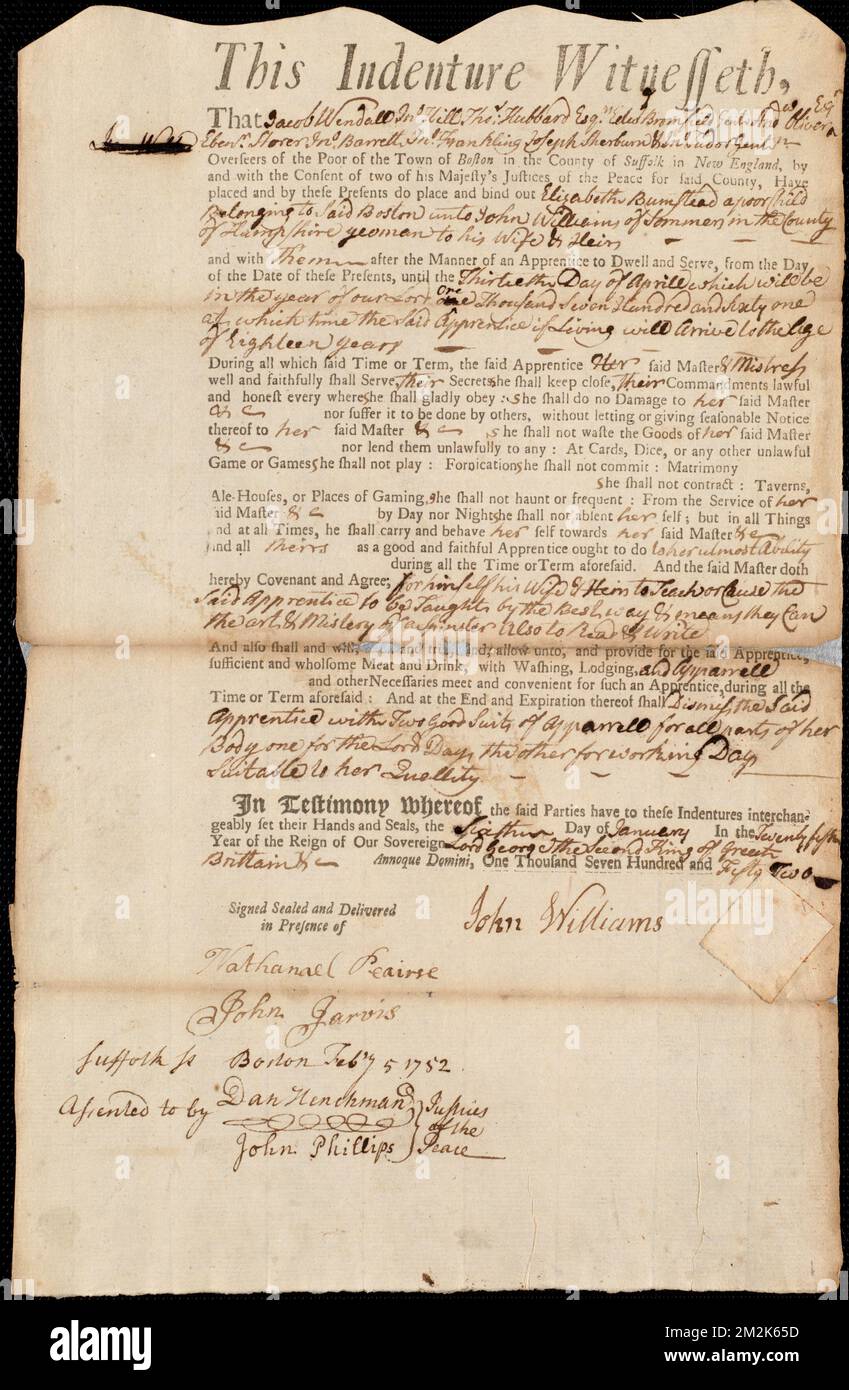 This Indenture Witnesseth,
That Jacob Wendall Jnº Hill Thoˢ Hubbard Esqʳˢ Edwᵈ Bromfield And Oliver Esqʳ
Ebenʳ Storer Jnº Barrett Jnº Frankling Joseph Sherburn & Tudor Gent
Overseers of the Poor of the Town of Boston in the County of Suffolk in New England, by
and with the Consent of two of his Majesty's Justices of the Peace for said County, Have
placed and by these Presents do place and bind out Elizabeth Bumstead a poor Child
Belonging to Said Boston unto John Williams of Sommers in the County
of Hampshire yeoman to his Wife & Heirs
and with Them after the Manner of an Apprentice to Dwell and Serve, from the Day
of the Date of these Presents, until the Thirtieth Day of Aprill which will be
in the year of our Lord One Thousand Seven Hundred and Sixty one
at which time the Said Apprentice if Living will Arive to the Age
of Eighteen years
During all which said Time or Term, the said Apprentice Her said Master & Mistress
well and faithfully shall Serve, their Secrets she shall keep close, their Commandments lawful
and honest every where she shall gladly obey: she shall do no Damage to her said Master
& C nor suffer it to be done by others, without letting or giving seasonable Notice
thereof to her said Master & C she shall not waste the Goods of her said Master
& C nor lend them unlawfully to any: At Cards, Dice, or any other unlawful
Game or Games she shall not play: Fornication she shall not commit: Matrimony
she shall not contract: Taverns,
Ale-Houses, or Places of Gaming, she shall not haunt or frequent: From the Service of her
said Master & C by Day nor Night she shall not absent her self; but in all Things
and at all Times, he shall carry and behave her self towards her said Master &c
and all theirs as a good and faithful Apprentice ought to do to her utmost Ability
during all the Time or Term aforesaid. And the said Master doth
hereby Covenant and Agree, for himself his Wife & Heirs to Teach or Cause the
Said Apprentice to be Taught by the Best way & means they Can
the art & Mistery of a spinster Also to Read & Write
And also shall and will, and truly find, allow unto, and provide for the said Apprentice,
sufficient and wholsome Meat and Drink, with Washing, Lodging, and Apparrell
and other Necessaries meet and convenient for such an Apprentice, during all the
Time or Term aforesaid: And at the End and Expiration thereof shall Dismiss the Said
Apprentice with Two Good Suits of Apparrell for all parts of her
Body one for the Lords Days the other for working Days
Suitable to her Quallity
In Testimony Whereof the said Parties have to these Indentures interchan-
geably set their Hands and Seals, the Day of January In the Twenty fifth
Year of the Reign of Our Sovereign Lord George the Second King of Great
Brittain &c Annoque Domini, One Thousand Seven Hundred and Fifty Two
Signed Sealed and Delivered
in Presence of
John Williams
Nathanael Peairse
John Jarvis
Suffolk ss Boston Febʸ 5 1752.
Assented to by Dan Henchman
John Phillips
Justices
of the
Peace
alamy
Image ID: 2M2K65D
www.alamy.com